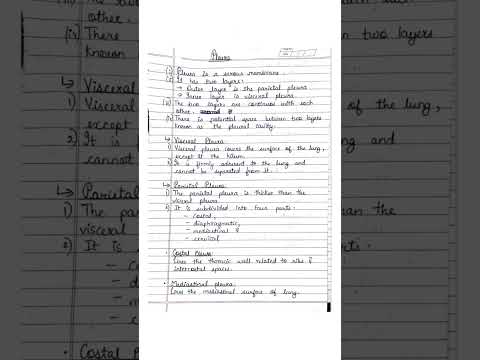 Pleura
(i) Pleura is a serous membrane.
(ii) It has two layers:
→ Outer layer is the parietal pleura
→ Inner layer is visceral pleura
(iii) The two layers are continuous with each
other.
(iv) There is potential space between two layers
known as the pleural cavity.
↳ Visceral Pleura
1) Visceral pleura covers the surface of the lung,
except at the hilum
2) It is firmly adherent to the lung and
cannot be separated from it.
↳ Parietal Pleura
1) The parietal pleura is thicker than the
visceral pleura
2) It is subdivided into four parts:
- costal,
- diaphragmatic,
- mediastinal &
- cervical
• Costal Pleura
Lines the thoracic wall related to ribs &
intercostal spaces.
• Mediastinal pleura
Lines the mediastinal surface of lung.